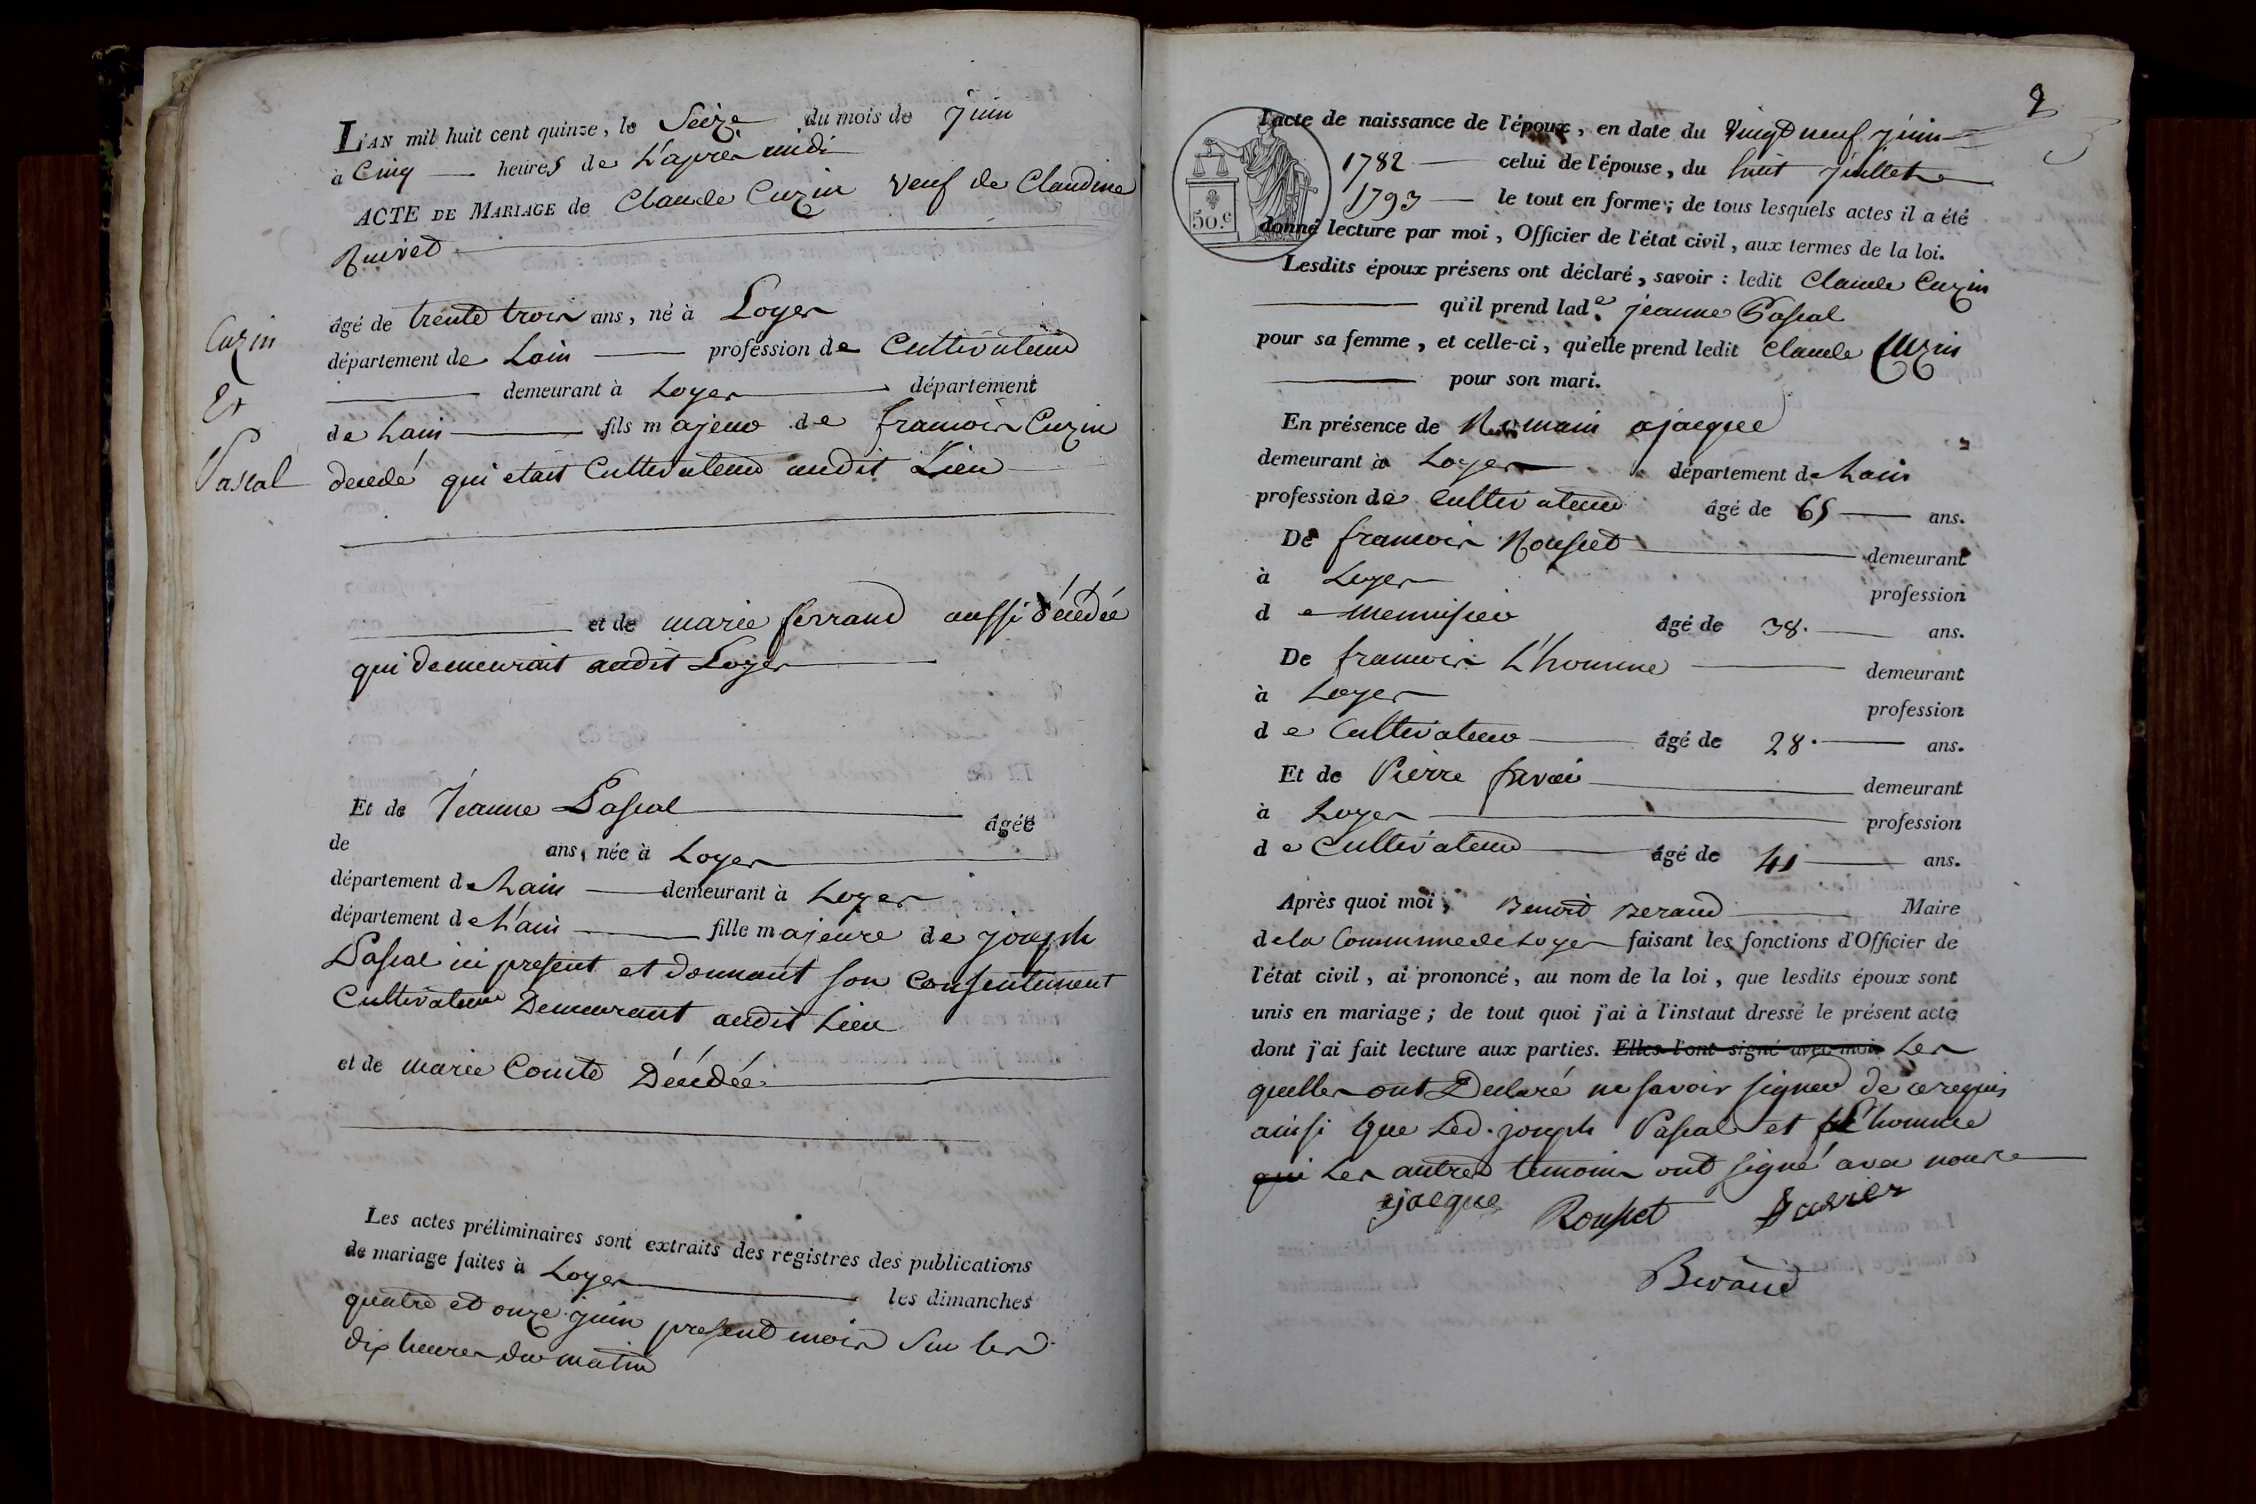 L'AN mil huit cent quinze, le Seize du mois de juin
à Cinq heures de L'apres midi
ACTE DE MARIAGE de Claude Cuzin veuf de Claudine
Ruivet
Cuzin
Et
Pascal
âgé de trente trois ans, né à Loyes
département de Lain profession de Cultivateur
demeurant à Loyes département
de Lain fils majeur de francois Cuzin
decedé qui etait Cultivateur audit Lieu
et de marie ferrand aussi décédée
qui demeurait audit Loyes
Et de Jeanne Pascal âgée
de ans, née à Loyes
département de Lain demeurant à Loyes
département de L'ain fille majeure de joseph
Pascal ici present et donnant son consentement
Cultivateur Demeurant audit Lieu
et de marie Comte Décédée
Les actes préliminaires sont extraits des registres des publications
de mariage faites à Loyes les dimanches
quatre et onze juin present mois Sur les
dix heures du matin
9
l'acte de naissance de l'époux, en date du Vingt neuf juin
1782 celui de l'épouse, du huit juillet
1793 le tout en forme; de tous lesquels actes il a été
50.c
donné lecture par moi, Officier de l'état civil, aux termes de la loi.
Lesdits époux présens ont déclaré, savoir : ledit Claude Cuzin
qu'il prend lad.e jeanne Pascal
pour sa femme, et celle-ci, qu'elle prend ledit Claude Cuzin
pour son mari.
En présence de Romain ajacque
demeurant à Loyes département de Lain
profession de cultivateur âgé de 65 ans.
De francois Rousset demeurant
à Loyes profession
de Menuisier âgé de 38. ans.
De francois L'homme demeurant
à Loyes profession
de Cultivateur âgé de 28. ans.
Et de Pierre favier demeurant
à Loyes profession
de Cultivateur âgé de 41 ans.
Après quoi moi, Benoit Beraud Maire
de la Commune de Loyes faisant les fonctions d'Officier de
l'état civil, ai prononcé, au nom de la loi, que lesdits époux sont
unis en mariage; de tout quoi j'ai à l'instant dressé le présent acte
dont j'ai fait lecture aux parties. Elles l'ont signé avec moi Les
quelles ont Declaré ne savoir signer de ce requis
ainsi que Led. joseph Pascal et L'homme
qui Les autres temoins ont signé avec nous
ajacque Rousset favier
Beraud